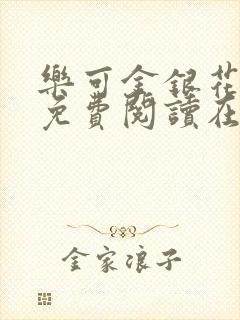 樂可金銀花
免費閱讀在
金家浪子